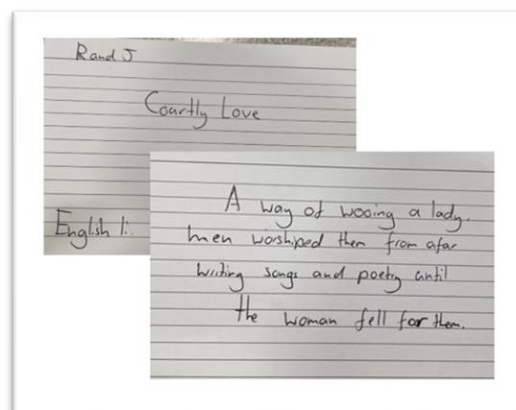 Rand J
Courtly Love
English li
A way of wooing a lady.
men worshiped them from afar
writing songs and poetry until
the woman fell for them.